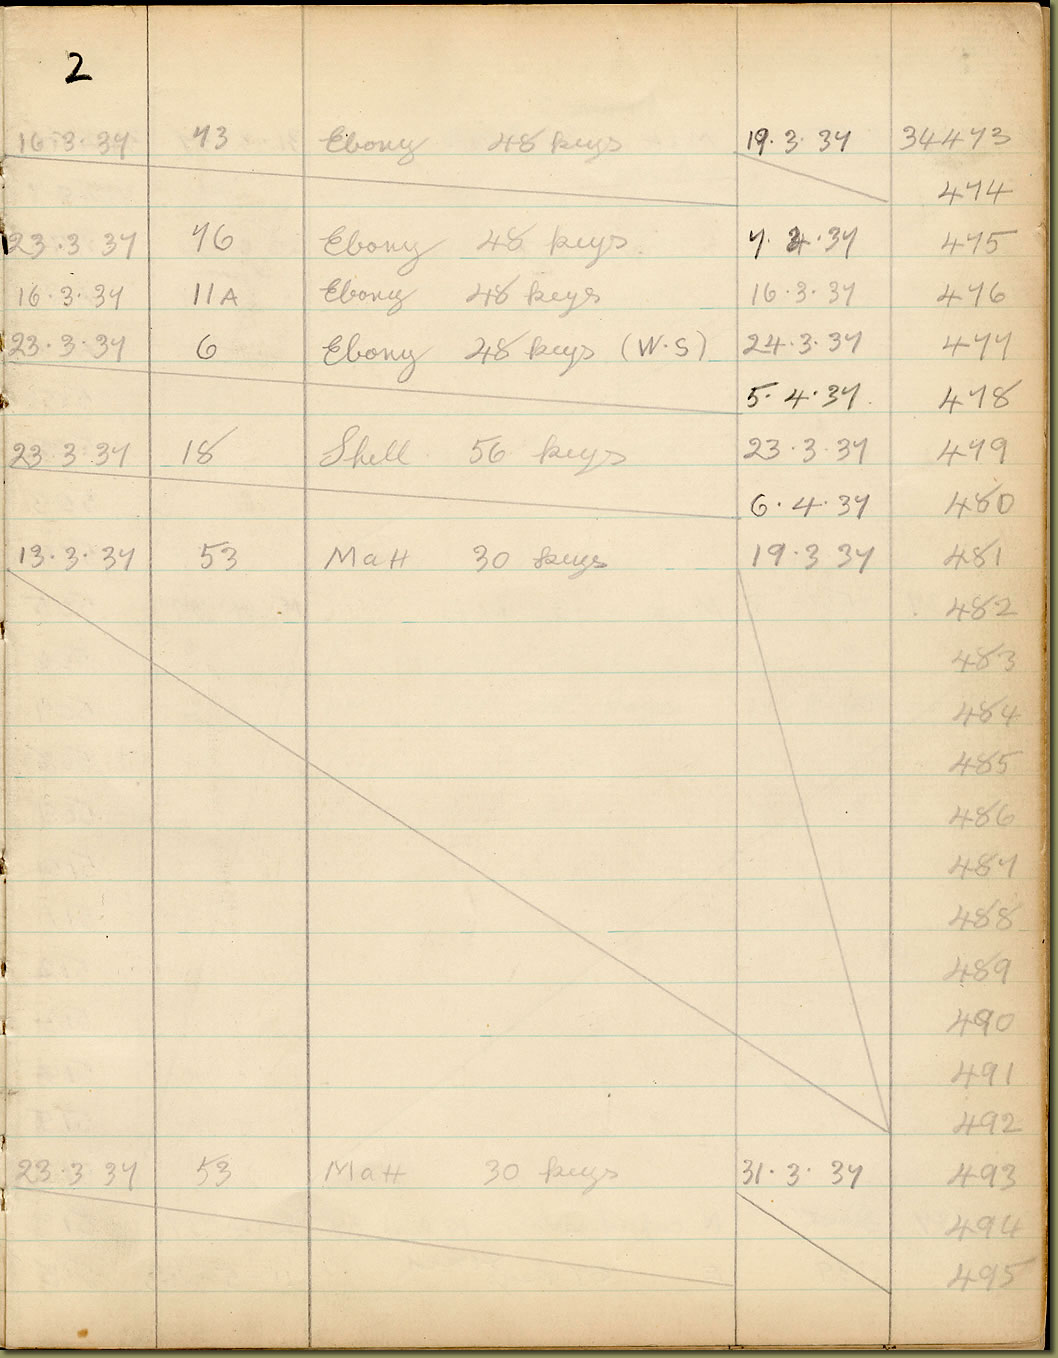 2
16·3·37 73 Ebony 48 keys 19·3·37 34473
474
23·3·37 76 Ebony 48 keys 7·4·37 475
16·3·37 11A Ebony 48 keys 16·3·37 476
23·3·37 6 Ebony 48 keys (W·S) 24·3·37 477
5·4·37 478
23·3·37 18 Shell 56 keys 23·3·37 479
6·4·37 480
13·3·37 53 Matt 30 keys 19·3·37 481
482
483
484
485
486
487
488
489
490
491
492
23·3·37 53 Matt 30 keys 31·3·37 493
494
495